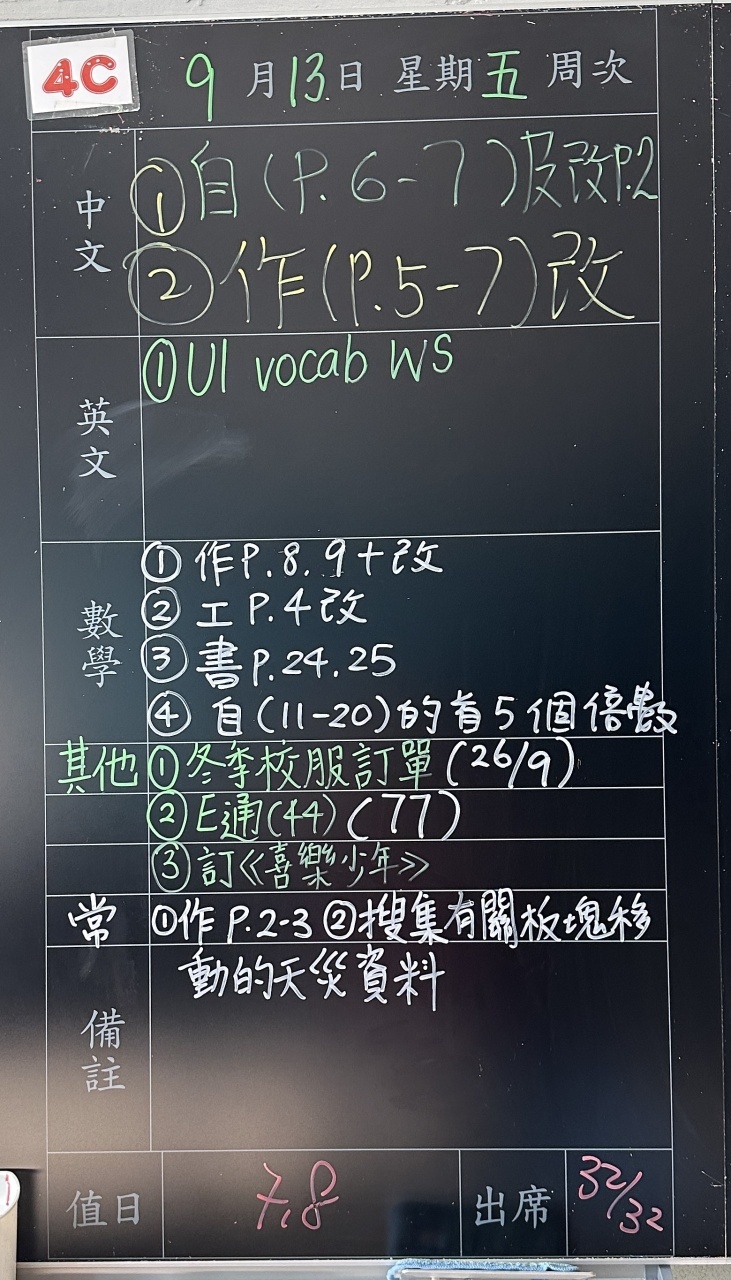 4C
9月13日 星期五 周次
中文
①自(P.6-7)及改P.2
②作(P.5-7)改
英文
①U1 vocab WS
數學
①作P.8.9+改
②工P.4改
③書P.24.25
④自(11-20)的首5個倍數
其他 ①冬季校服訂單(26/9)
②E通(44)(77)
③訂《喜樂少年》
常 ①作P.2-3 ②搜集有關板塊移
動的天災資料
備註
值日 7,8 出席 32/32